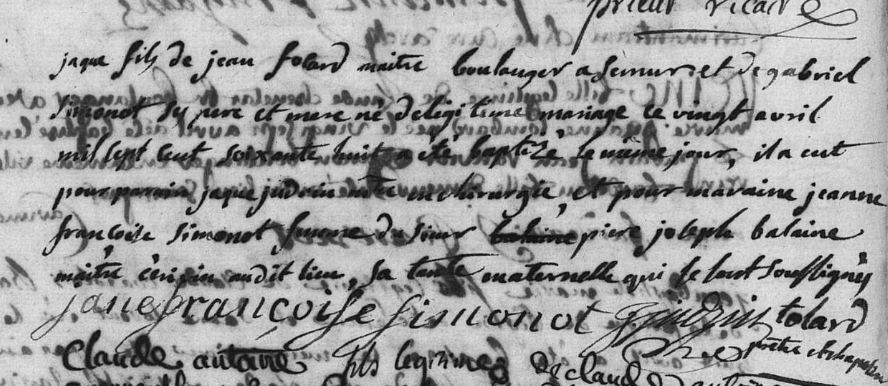 prieur vicaire
jaque fils de jean folard maitre boulanger a semur et de gabriel
simonot sy pere et mere né de legitime mariage ce vingt avril
mil sept cent soixante huit a été baptizé le même jour, il a eut
pour parain jaque judrin mtre en chirurgie, et pour maraine jeanne
françoise simonot femme du sieur piere joseph balaine
maitre audit lieu, sa tante maternelle qui se sont soussignés
jane françoise simonot folard
prêtre et
Claude antoine fils legitime de claude